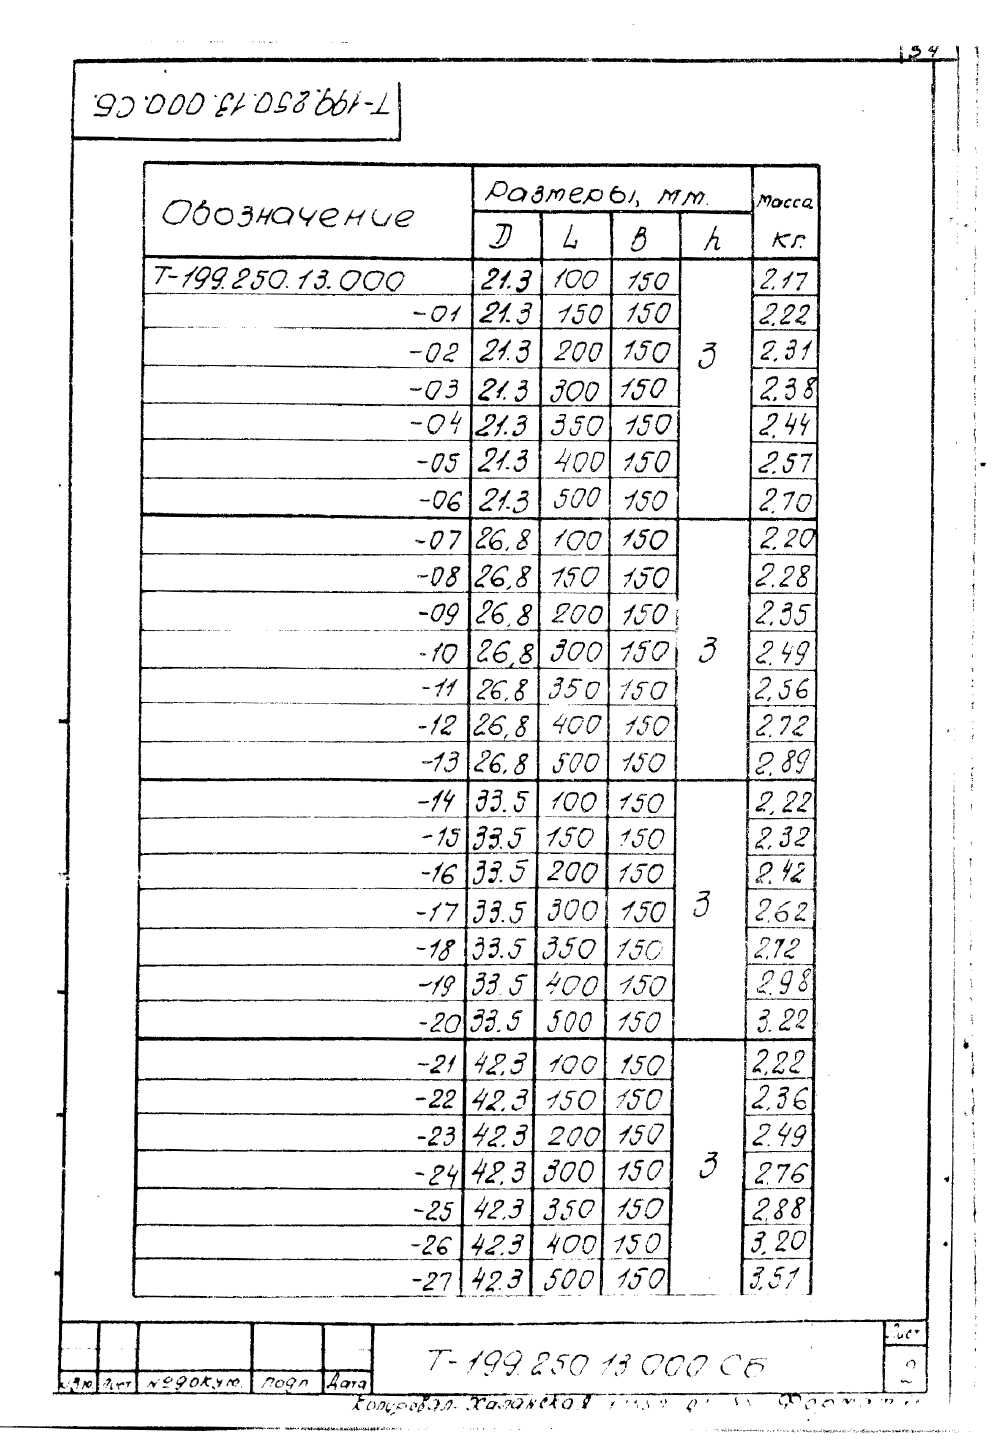 34
Т-199.250.13.000.СБ.
Обозначение Размеры, мм. Масса кг.
D L B h
Т-199.250.13.000 21.3 100 150 2.17
-01 21.3 150 150 2.22
-02 21.3 200 150 3 2.31
-03 21.3 300 150 2.38
-04 21.3 350 150 2.44
-05 21.3 400 150 2.57
-06 21.3 500 150 2.70
-07 26,8 100 150 2.20
-08 26,8 150 150 2.28
-09 26,8 200 150 2.35
-10 26,8 300 150 3 2.49
-11 26.8 350 150 2.56
-12 26,8 400 150 2.72
-13 26.8 500 150 2.89
-14 33.5 100 150 2.22
-15 33.5 150 150 2.32
-16 33.5 200 150 2.42
-17 33.5 300 150 3 2.62
-18 33.5 350 150 2.72
-19 33.5 400 150 2.98
-20 33.5 500 150 3.22
-21 42.3 100 150 2.22
-22 42.3 150 150 2.36
-23 42.3 200 150 2.49
-24 42.3 300 150 3 2.76
-25 42.3 350 150 2.88
-26 42.3 400 150 3.20
-27 42.3 500 150 3.51
Лист
Т-199.250.13.000 СБ
2
Изм Лист № докум. Подп Дата
Копировал- Халанская Формат